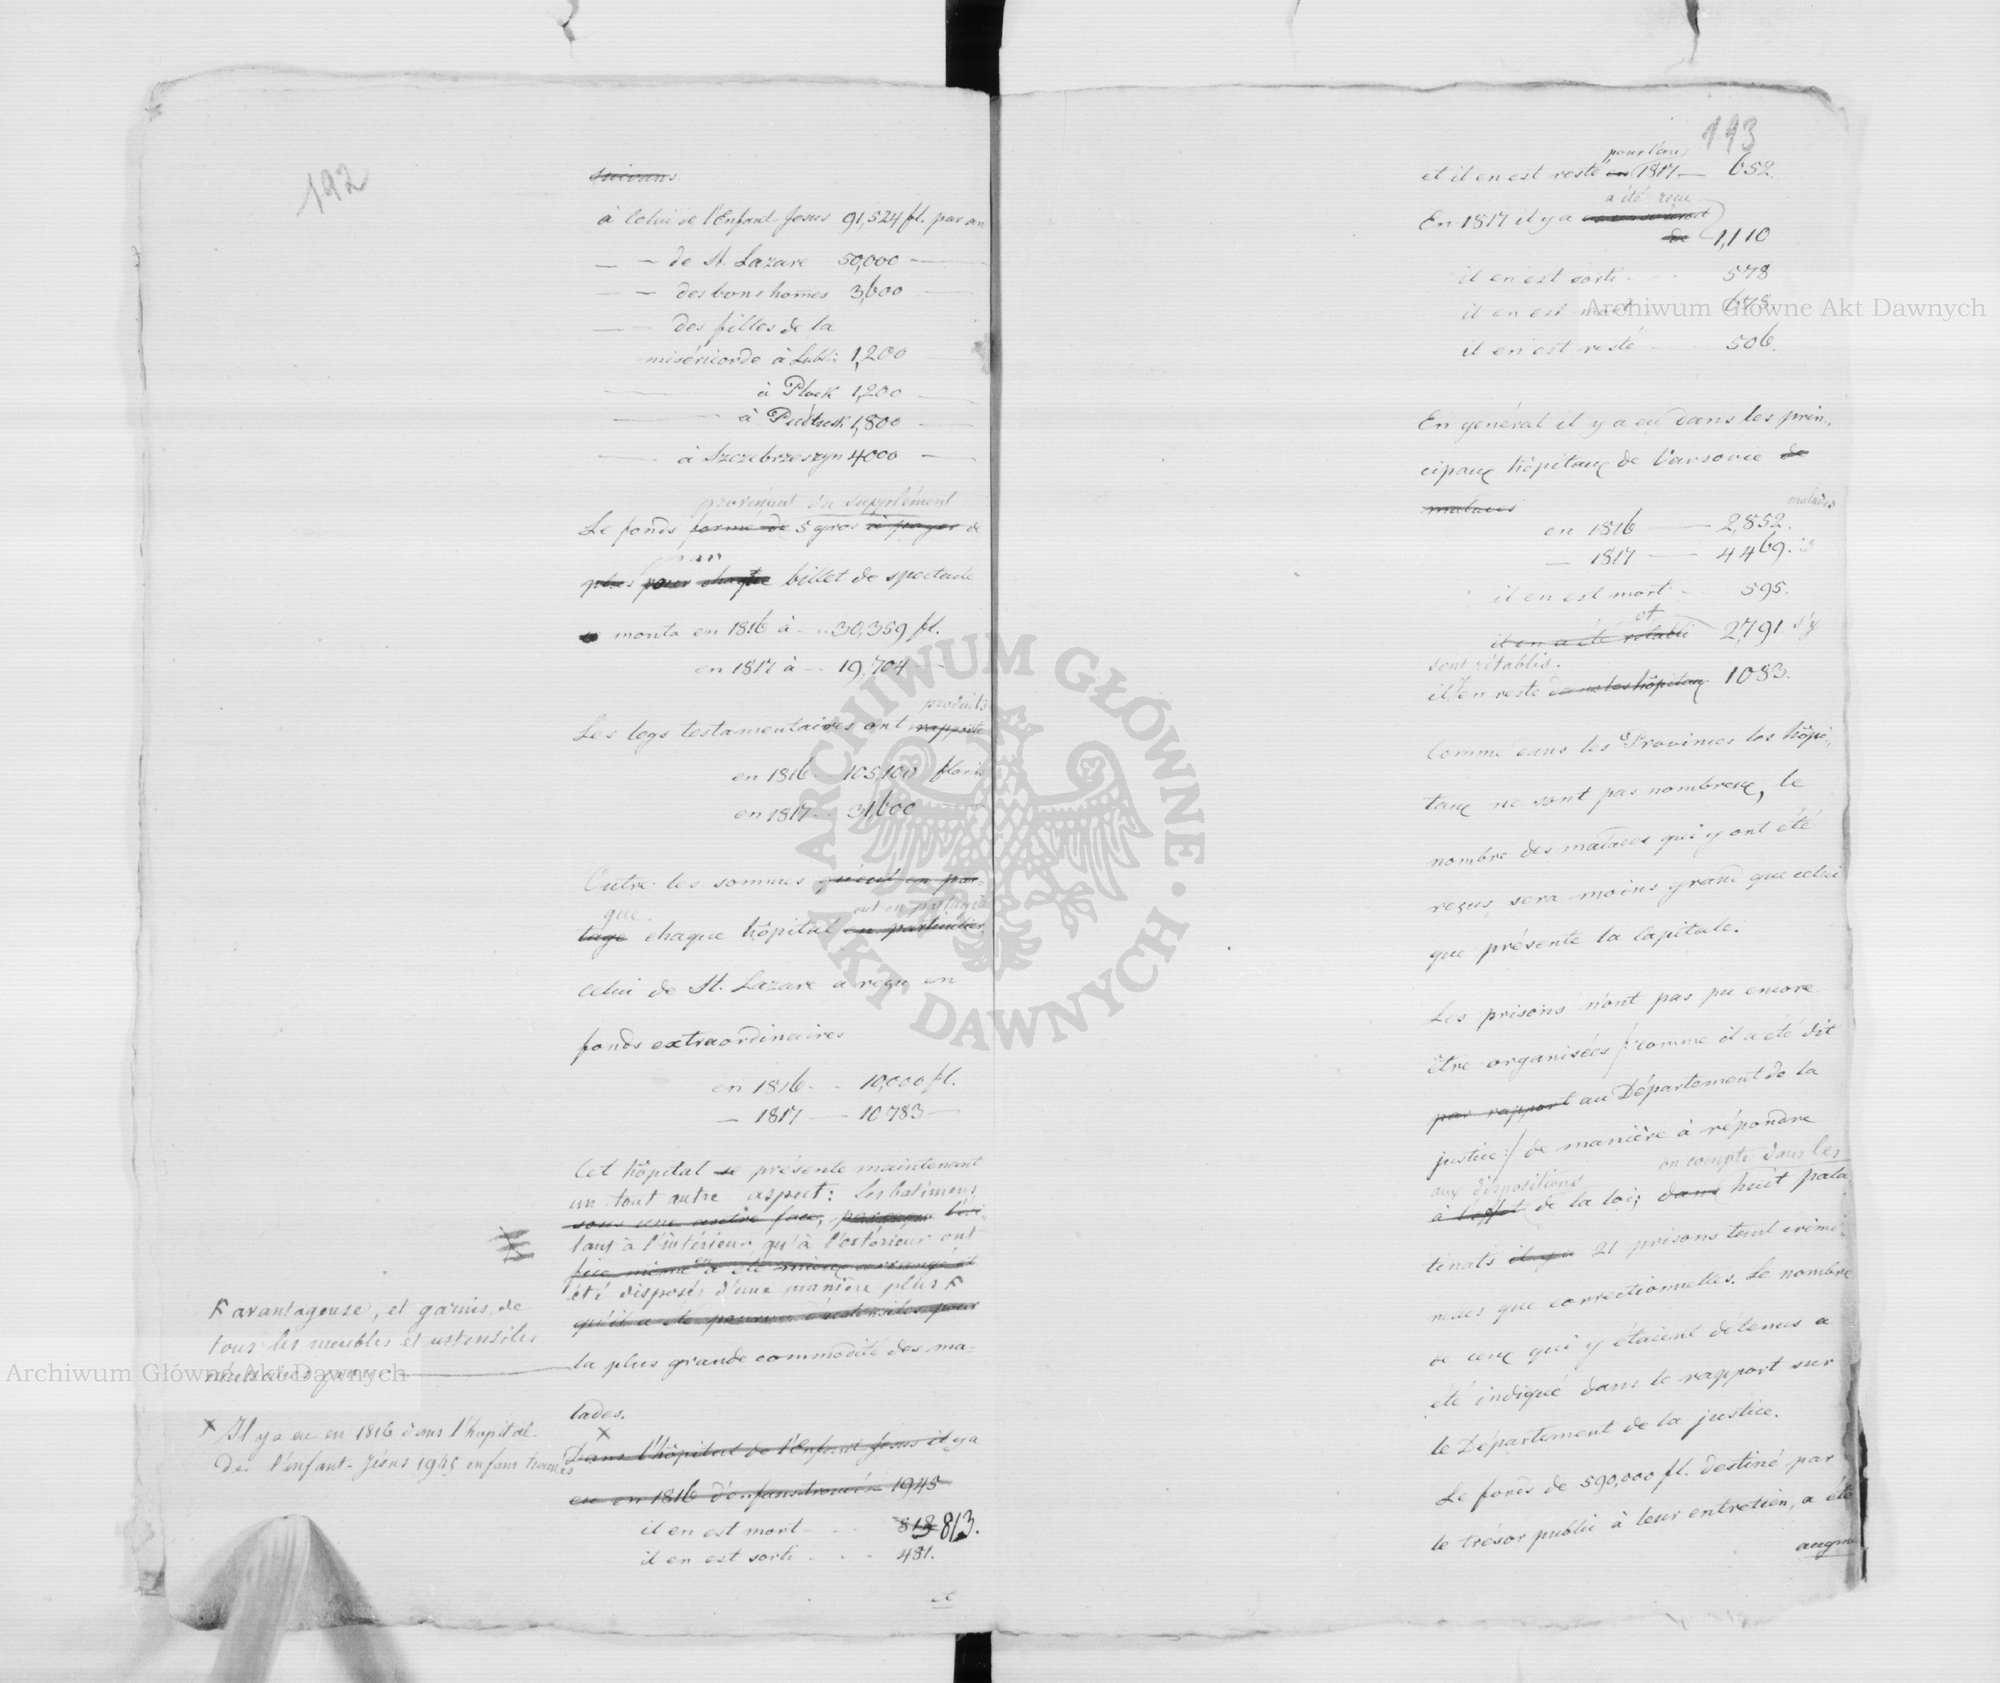 192
suivans
à celui de l'Enfant-Jesus 91,524 fl. par an
— — de St. Lazare 50,000 —
— — des bons homes 3,600 —
— — des filles de la
miséricorde à Lublin 1,200
— à Plock 1,200 —
— à Pultusk 1,800 —
— à Szczebrzeszyn 4000 —
provenant du supplément
Le fonds formé de 5 gros à payer de
par
plus pour chaque billet de spectacle
monta en 1816 à - 30,359 fl.
en 1817 à - 19,704 —
produits
Les legs testamentaires ont rapporté
en 1816 - 105,100 florins
en 1817 - 31,600 —
Outre les sommes qu'eut en par-
que eut en partage
tage chaque hôpital en particulier,
celui de St. Lazare a reçu en
fonds extraordinaires
en 1816 - - 10,000 fl.
— 1817 — 10783 —
Cet hôpital se présente maintenant
un tout autre aspect: Les batimens
sous une autre face,
tant à l'intérieur qu'à l'extérieur ont
été disposés d'une manière plus F
qu'il a été pourvu d'ustensiles pour
la plus grande commodité des ma-
lades.
F avantageuse, et garnis de
tous les meubles et ustensiles
nécessaires pour
X Il y a eu en 1816 dans l'hopital
de l'enfant-Jésus 1945 enfans trouvés
X
Dans l'hôpital de l'Enfant-Jesus il y a
eu en 1816 d'enfans trouvés 1945
il en est mort - - - 818 813.
il en est sorti - - - 481.
et
193
pour l'an
et il en est resté en 1817 — 652.
a été reçu
En 1817 il y a
de 1,110
il en est sorti - - - 578
il en est mort
il en est resté 506.
En général il y a eu dans les prin-
cipaux hôpitaux de Varsovie de
malades malades
en 1816 — 2,852.
— 1817 — 4469. id
il en est mort - 595.
et
il en a été rétabli 2,791 s'y
sont rétablis.
il en reste dans les hôpitaux 1083.
Comme dans les Provinces les hôpi-
taux ne sont pas nombreux, le
nombre des malades qui y ont été
reçus, sera moins grand que celui
que présente la Capitale.
Les prisons n'ont pas pu encore
être organisées /:comme il a été dit
par rapport au Département de la
justice:/ de manière à répondre
aux dispositions on compte dans les
à l'effet de la loi; dans huit pala-
tinats il y a 21 prisons tant crimi-
nelles que correctionnelles. Le nombre
de ceux qui y étaient détenus a
été indiqué dans le rapport sur
le Département de la justice.
Le fonds de 590,000 fl. destiné par
le trésor public à leur entretien, a été
augm
Archiwum Główne Akt Dawnych
Archiwum Główne Akt Dawnych
ARCHIWUM GŁÓWNE · AKT DAWNYCH ·